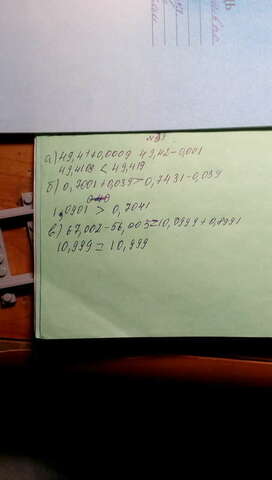 а) 49,41+0,0009 49,42-0,001
49,4109 < 49,419
б) 0,7001+0,039>0,7431-0,039
1,0901 > 0,7041
в) 67,002-56,003=10,0999+0,8991
10,999 = 10,999